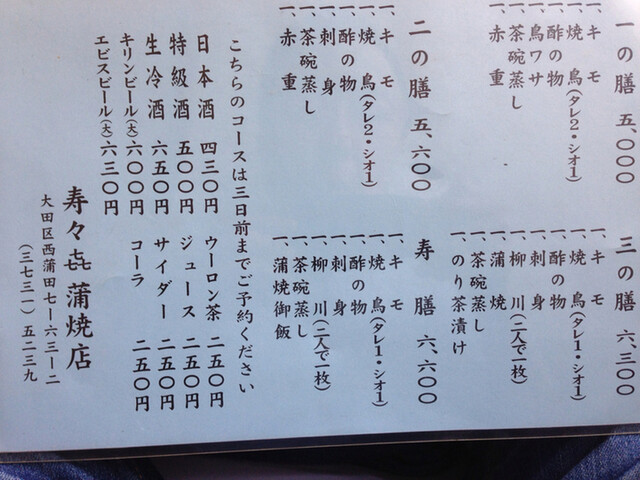 一の膳 五、〇〇〇
一、キモ
一、焼鳥(タレ2・シオ1)
一、酢の物
一、鳥ワサ
一、茶碗蒸し
一、赤重
二の膳 五、六〇〇
一、キモ
一、焼鳥(タレ2・シオ1)
一、酢の物
一、刺身
一、茶碗蒸し
一、赤重
三の膳 六、三〇〇
一、キモ
一、焼鳥(タレ1・シオ1)
一、酢の物
一、刺身
一、柳川(二人で一枚)
一、蒲焼
一、茶碗蒸し
一、のり茶漬け
寿膳 六、六〇〇
一、キモ
一、焼鳥(タレ1・シオ1)
一、酢の物
一、刺身
一、柳川(二人で一枚)
一、茶碗蒸し
一、蒲焼御飯
こちらのコースは三日前までご予約ください
日本酒 四三〇円
特級酒 五〇〇円
生冷酒 六五〇円
キリンビール(大) 六〇〇円
エビスビール(大) 六三〇円
ウーロン茶 二五〇円
ジュース 二五〇円
サイダー 二五〇円
コーラ 二五〇円
寿々㐂蒲焼店
大田区西蒲田七ー六三ー二
(三七三一)五二三九